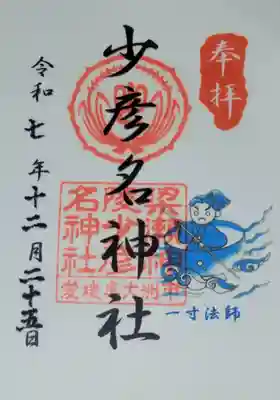 奉拝
少彦名神社
令和七年十二月二十五日
名神社
愛媛県大洲
一寸法師